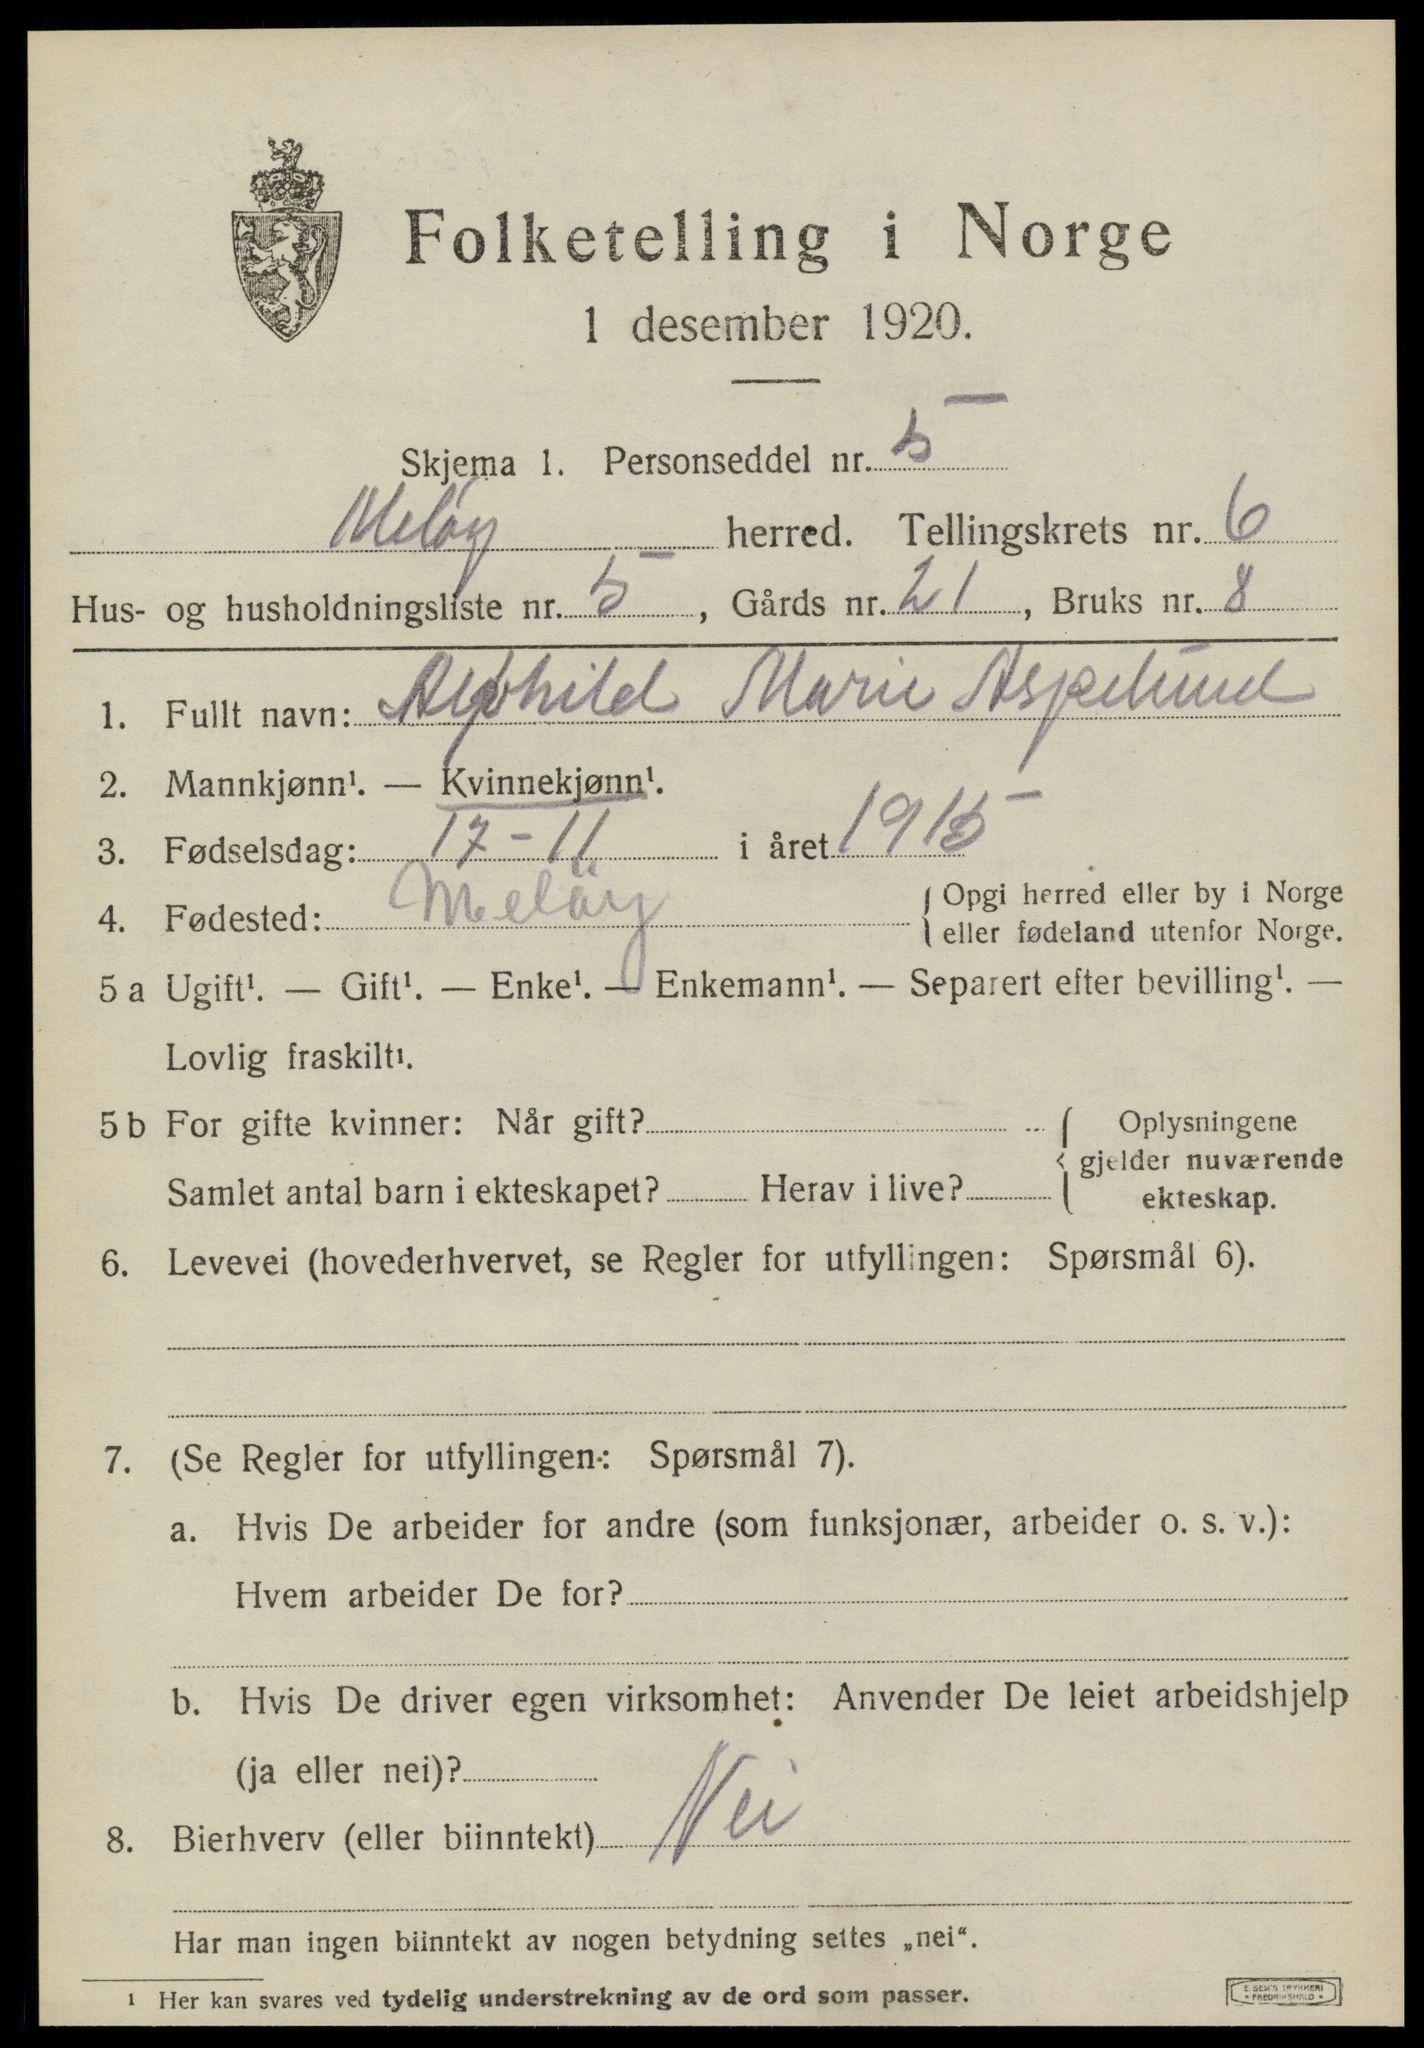 Folketelling i Norge
1 desember 1920.
Skjema 1. Personseddel nr. 5
Meløy herred. Tellingskrets nr. 6
Hus- og husholdningsliste nr. 5, Gårds nr. 21, Bruks nr. 8
1. Fullt navn: Marie Aspelund
2. Mannkjønn¹. — Kvinnekjønn¹.
3. Fødselsdag: 17-11 i året 1915
4. Fødested: Meløy { Opgi herred eller by i Norge
eller fødeland utenfor Norge.
5 a Ugift¹. — Gift¹. — Enke¹. — Enkemann¹. — Separert efter bevilling¹. —
Lovlig fraskilt¹.
5 b For gifte kvinner: Når gift? { Oplysningene
gjelder nuværende
Samlet antal barn i ekteskapet? Herav i live? ekteskap.
6. Levevei (hovederhvervet, se Regler for utfyllingen: Spørsmål 6).
7. (Se Regler for utfyllingen: Spørsmål 7).
a. Hvis De arbeider for andre (som funksjonær, arbeider o. s. v.):
Hvem arbeider De for?
b. Hvis De driver egen virksomhet: Anvender De leiet arbeidshjelp
(ja eller nei)?
8. Bierhverv (eller biinntekt) Nei
Har man ingen biinntekt av nogen betydning settes „nei“.
¹ Her kan svares ved tydelig understrekning av de ord som passer.
E SEM'S TRYKKERI
• FREDRIKSHALD •